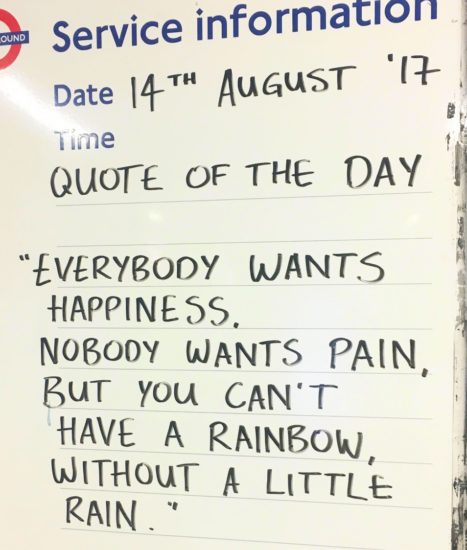 OUND
Service information
Date 14TH AUGUST '17
Time
QUOTE OF THE DAY
"EVERYBODY WANTS
HAPPINESS,
NOBODY WANTS PAIN,
BUT YOU CAN'T
HAVE A RAINBOW,
WITHOUT A LITTLE
RAIN."